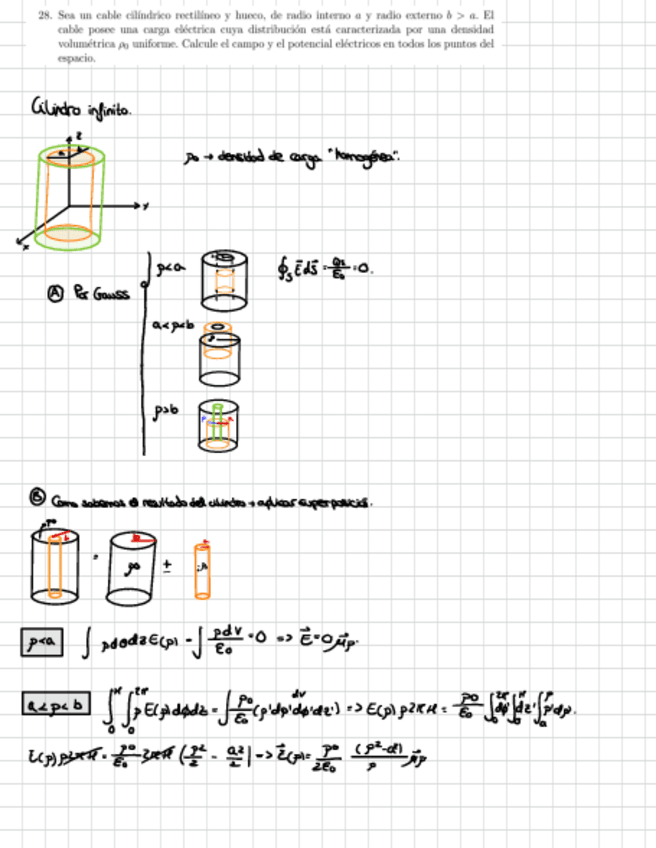 28. Sea un cable cilíndrico rectilíneo y hueco, de radio interno a y radio externo b > a. El
cable posee una carga eléctrica cuya distribución está caracterizada por una densidad
volumétrica ρ₀ uniforme. Calcule el campo y el potencial eléctricos en todos los puntos del
espacio.
Cilindro infinito.
z
ρ₀ → densidad de carga "homogénea".
y
x
ρ<a
∮ₛ E⃗ dS⃗ = Q_T/ε₀ = 0.
Ⓐ Por Gauss
a<ρ<b
ρ>b
Ⓑ Como sabemos el resultado del cilindro → aplicar superposición.
= ρ₀ ±
ρ<a ∫ ρdϕdz E(ρ) = ∫ ρdV/ε₀ = 0 => E⃗ = 0 μ⃗ρ.
a<ρ<b ∫₀ᴴ ∫₀²π ρ E(ρ) dϕdz = ∫ ρ₀/ε₀ (ρ'dρ'dϕ'dz') => E(ρ) ρ2πH = ρ₀/ε₀ ∫₀²π dϕ' ∫₀ᴴ dz' ∫ₐρ ρ'dρ.
dV
E(ρ) ρ2πH = ρ₀/ε₀ 2πH (ρ²/2 - a²/2) -> E⃗(ρ) = ρ₀/2ε₀ (ρ²-a²)/ρ μ⃗ρ